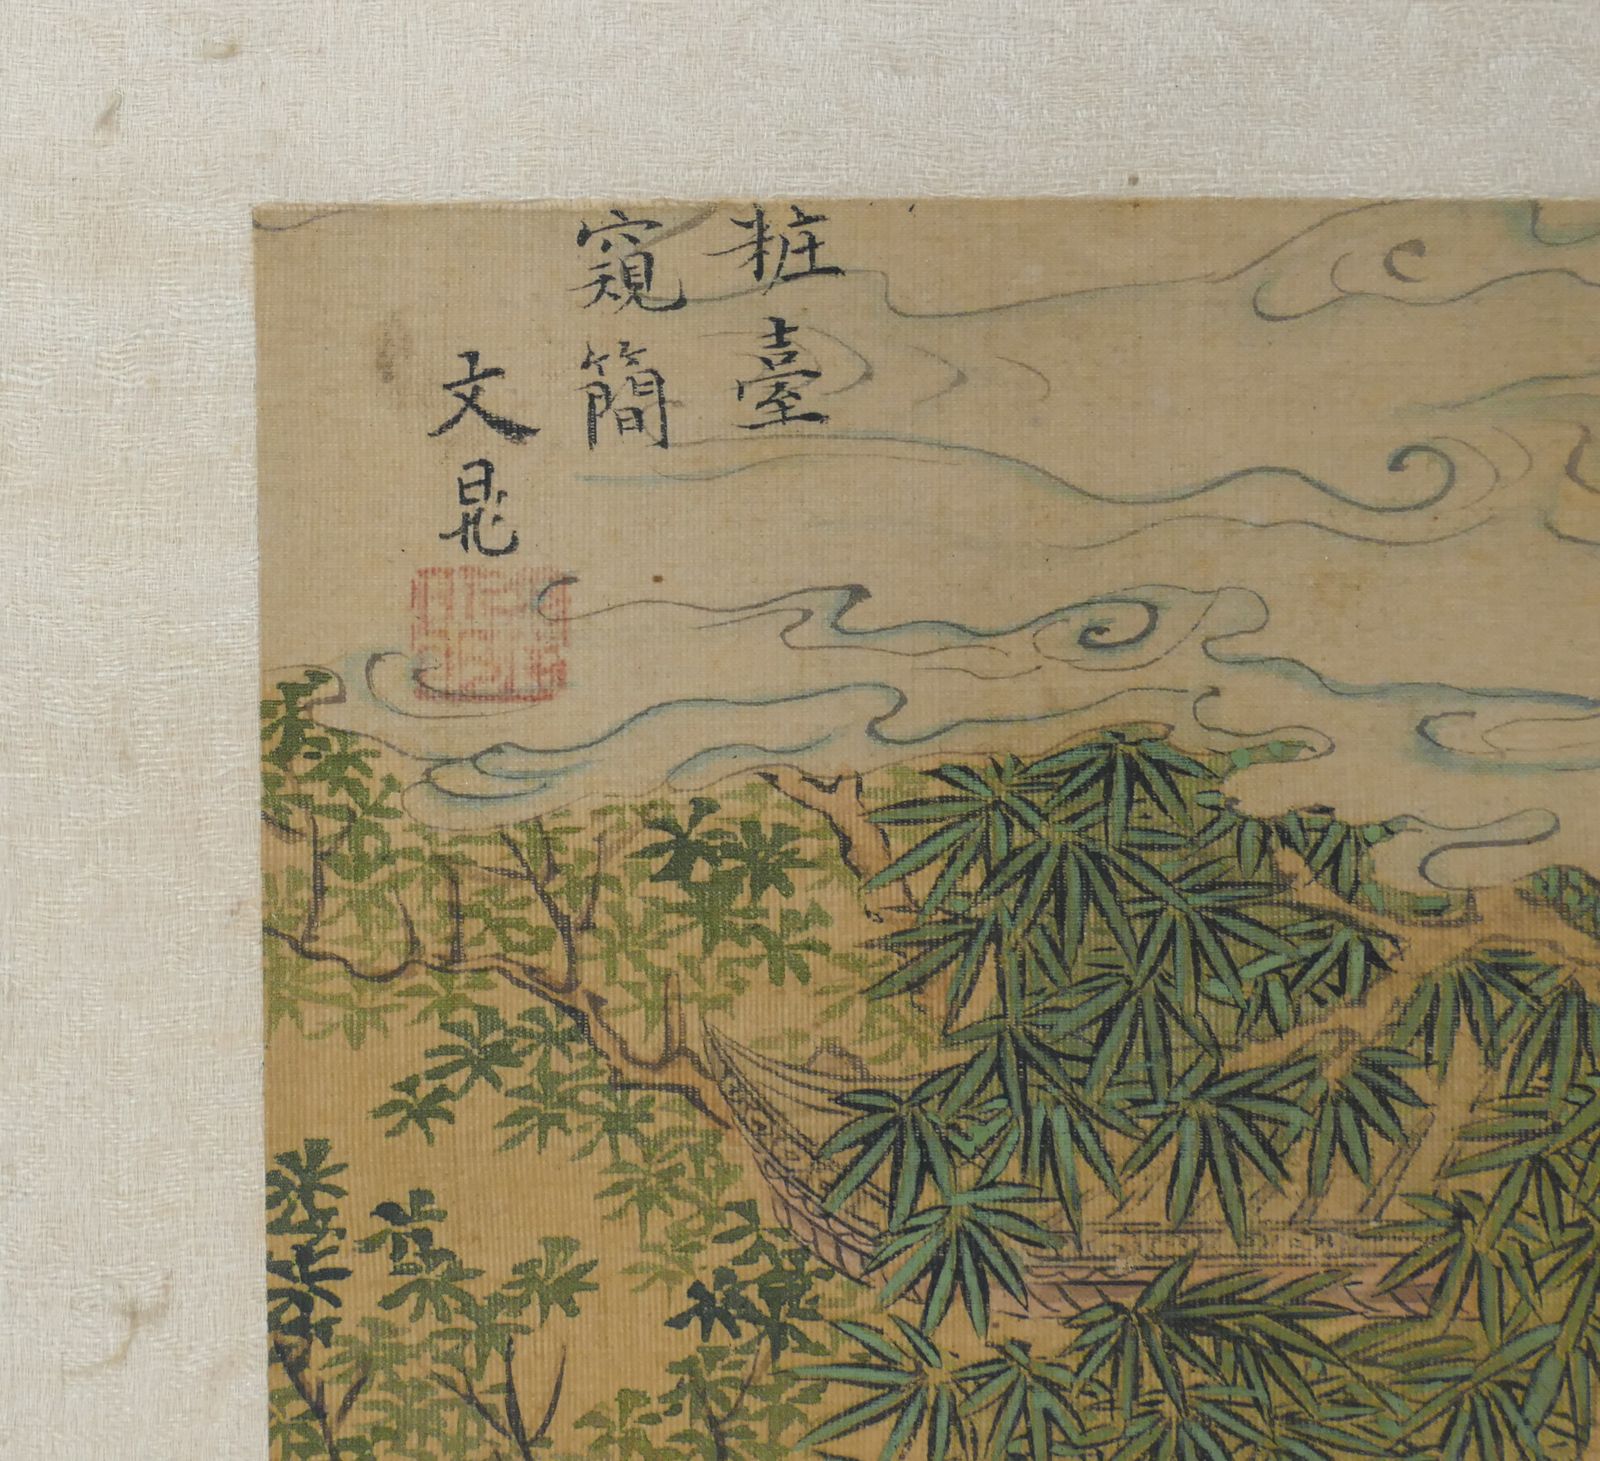 粧臺
窺簡
文晁